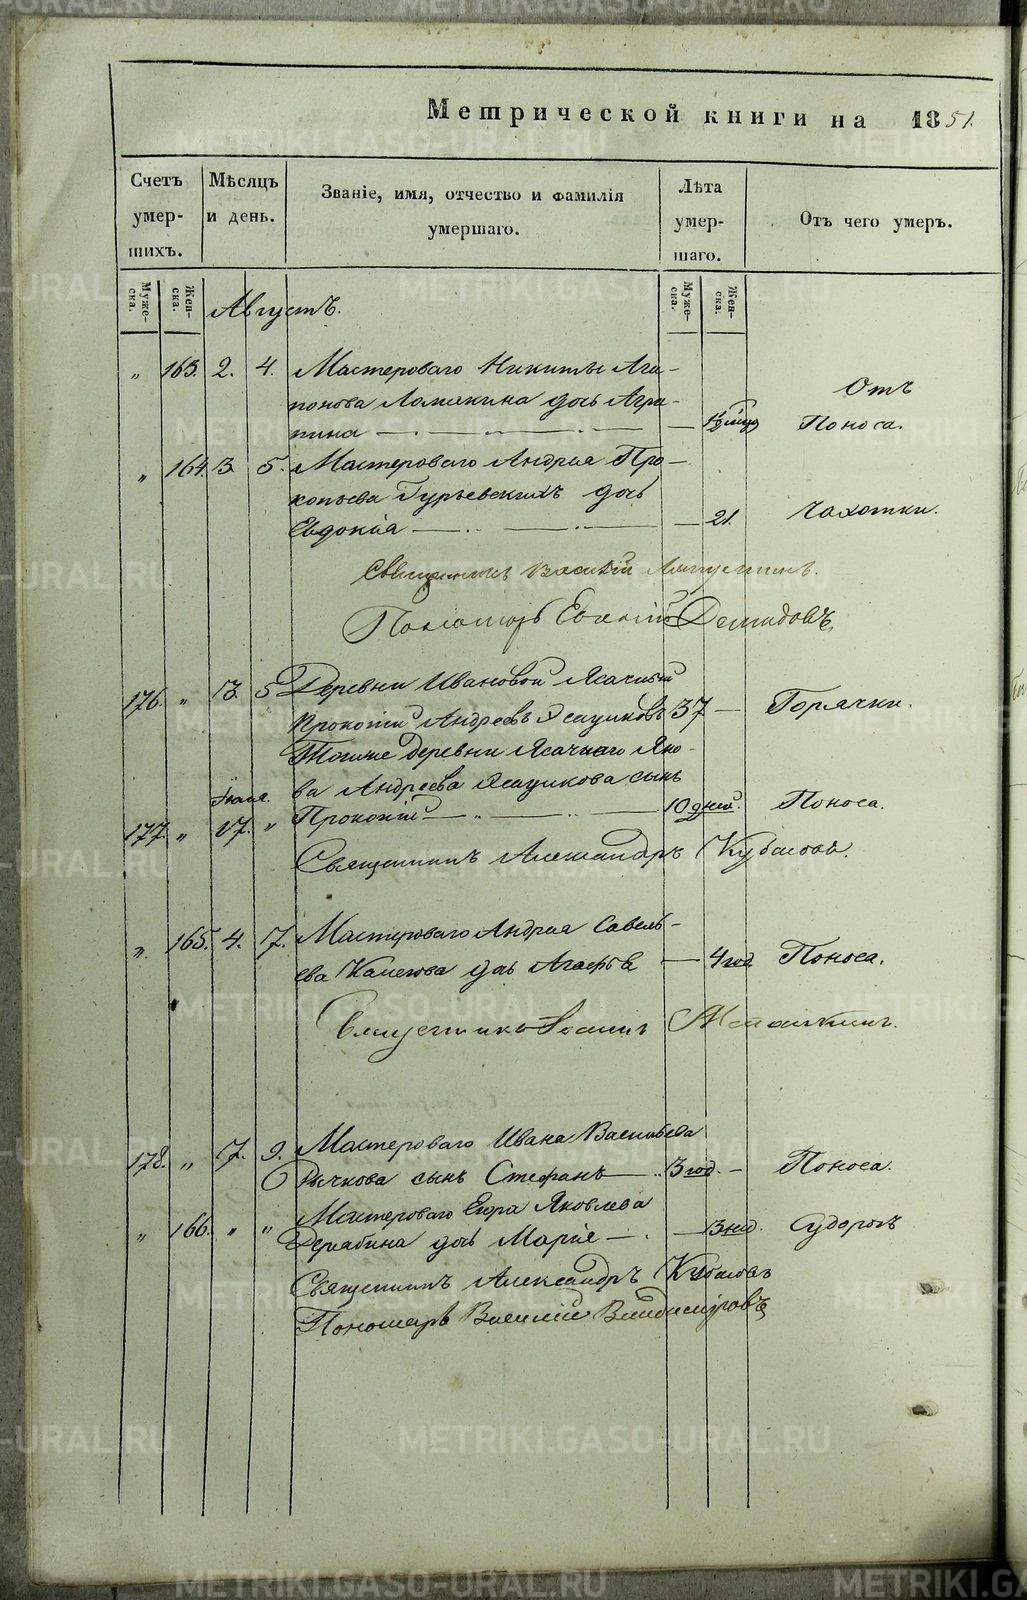 Метрической книги на 1851.
Счетъ умершихъ.
Мѣсяцъ и день.
Званіе, имя, отчество и фамилія умершаго.
Лѣта умершаго.
Отъ чего умеръ.
Мужеска.
Женска.
Мужеска.
Женска.
Августъ.
„ 163. 2. 4. Мастероваго Никиты Ага-
понова дочь Агри-
пина — Отъ Поноса.
„ 164. 3. 5. Мастероваго Андрея Про-
копьева Гурьевскихъ дочь
Евдокія — 21. Чахотки.
Священникъ Василій
Пономарь Демидовъ
176. „ 3. 5 Деревни Ивановой Ясачный
Прокопій Андреевъ Ясашиковъ 37 — Горячки.
Тойже деревни Ясачнаго Яко-
ва Андреева Ясашикова сынъ
177. „ Іюля. „ Прокопій — 10 дней. Поноса.
Священникъ Александръ Кубасовъ.
„ 165. 4. 7. Мастероваго Андрея Савель-
ева дочь Агафья — 4 год Поноса.
Священникъ Іоаннъ
178. „ 7. 9. Мастероваго Ивана Васильева
Рычкова сынъ Стефанъ — 3 год. — Поноса.
„ 166. „ „ Мастероваго Егора Яковлева
Дерябина дочь Марія — 3 нед. Судорогъ
Священникъ Александръ Кубасовъ
Пономарь Василій Владиміровъ
METRIKI.GASO-URAL.RU